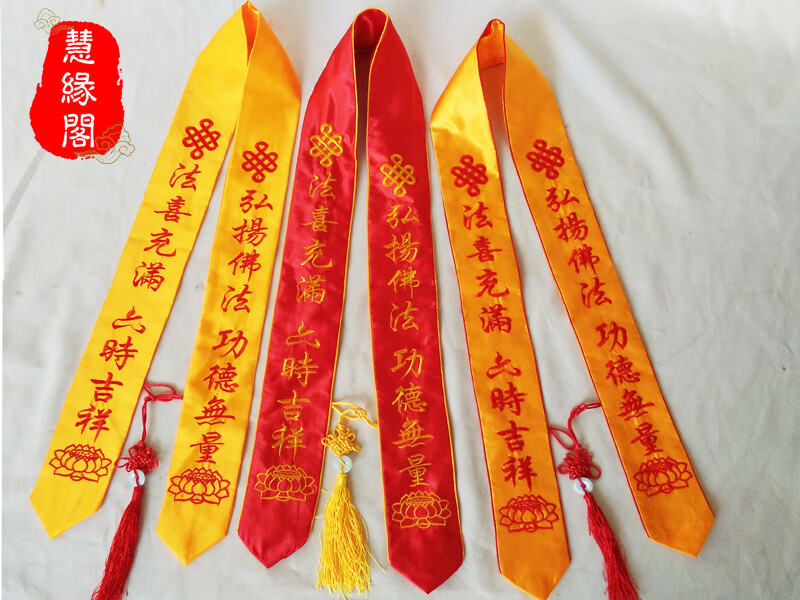 慧緣閣
法喜充滿 六時吉祥
弘揚佛法 功德無量
法喜充滿 六時吉祥
弘揚佛法 功德無量
法喜充滿 六時吉祥
弘揚佛法 功德無量